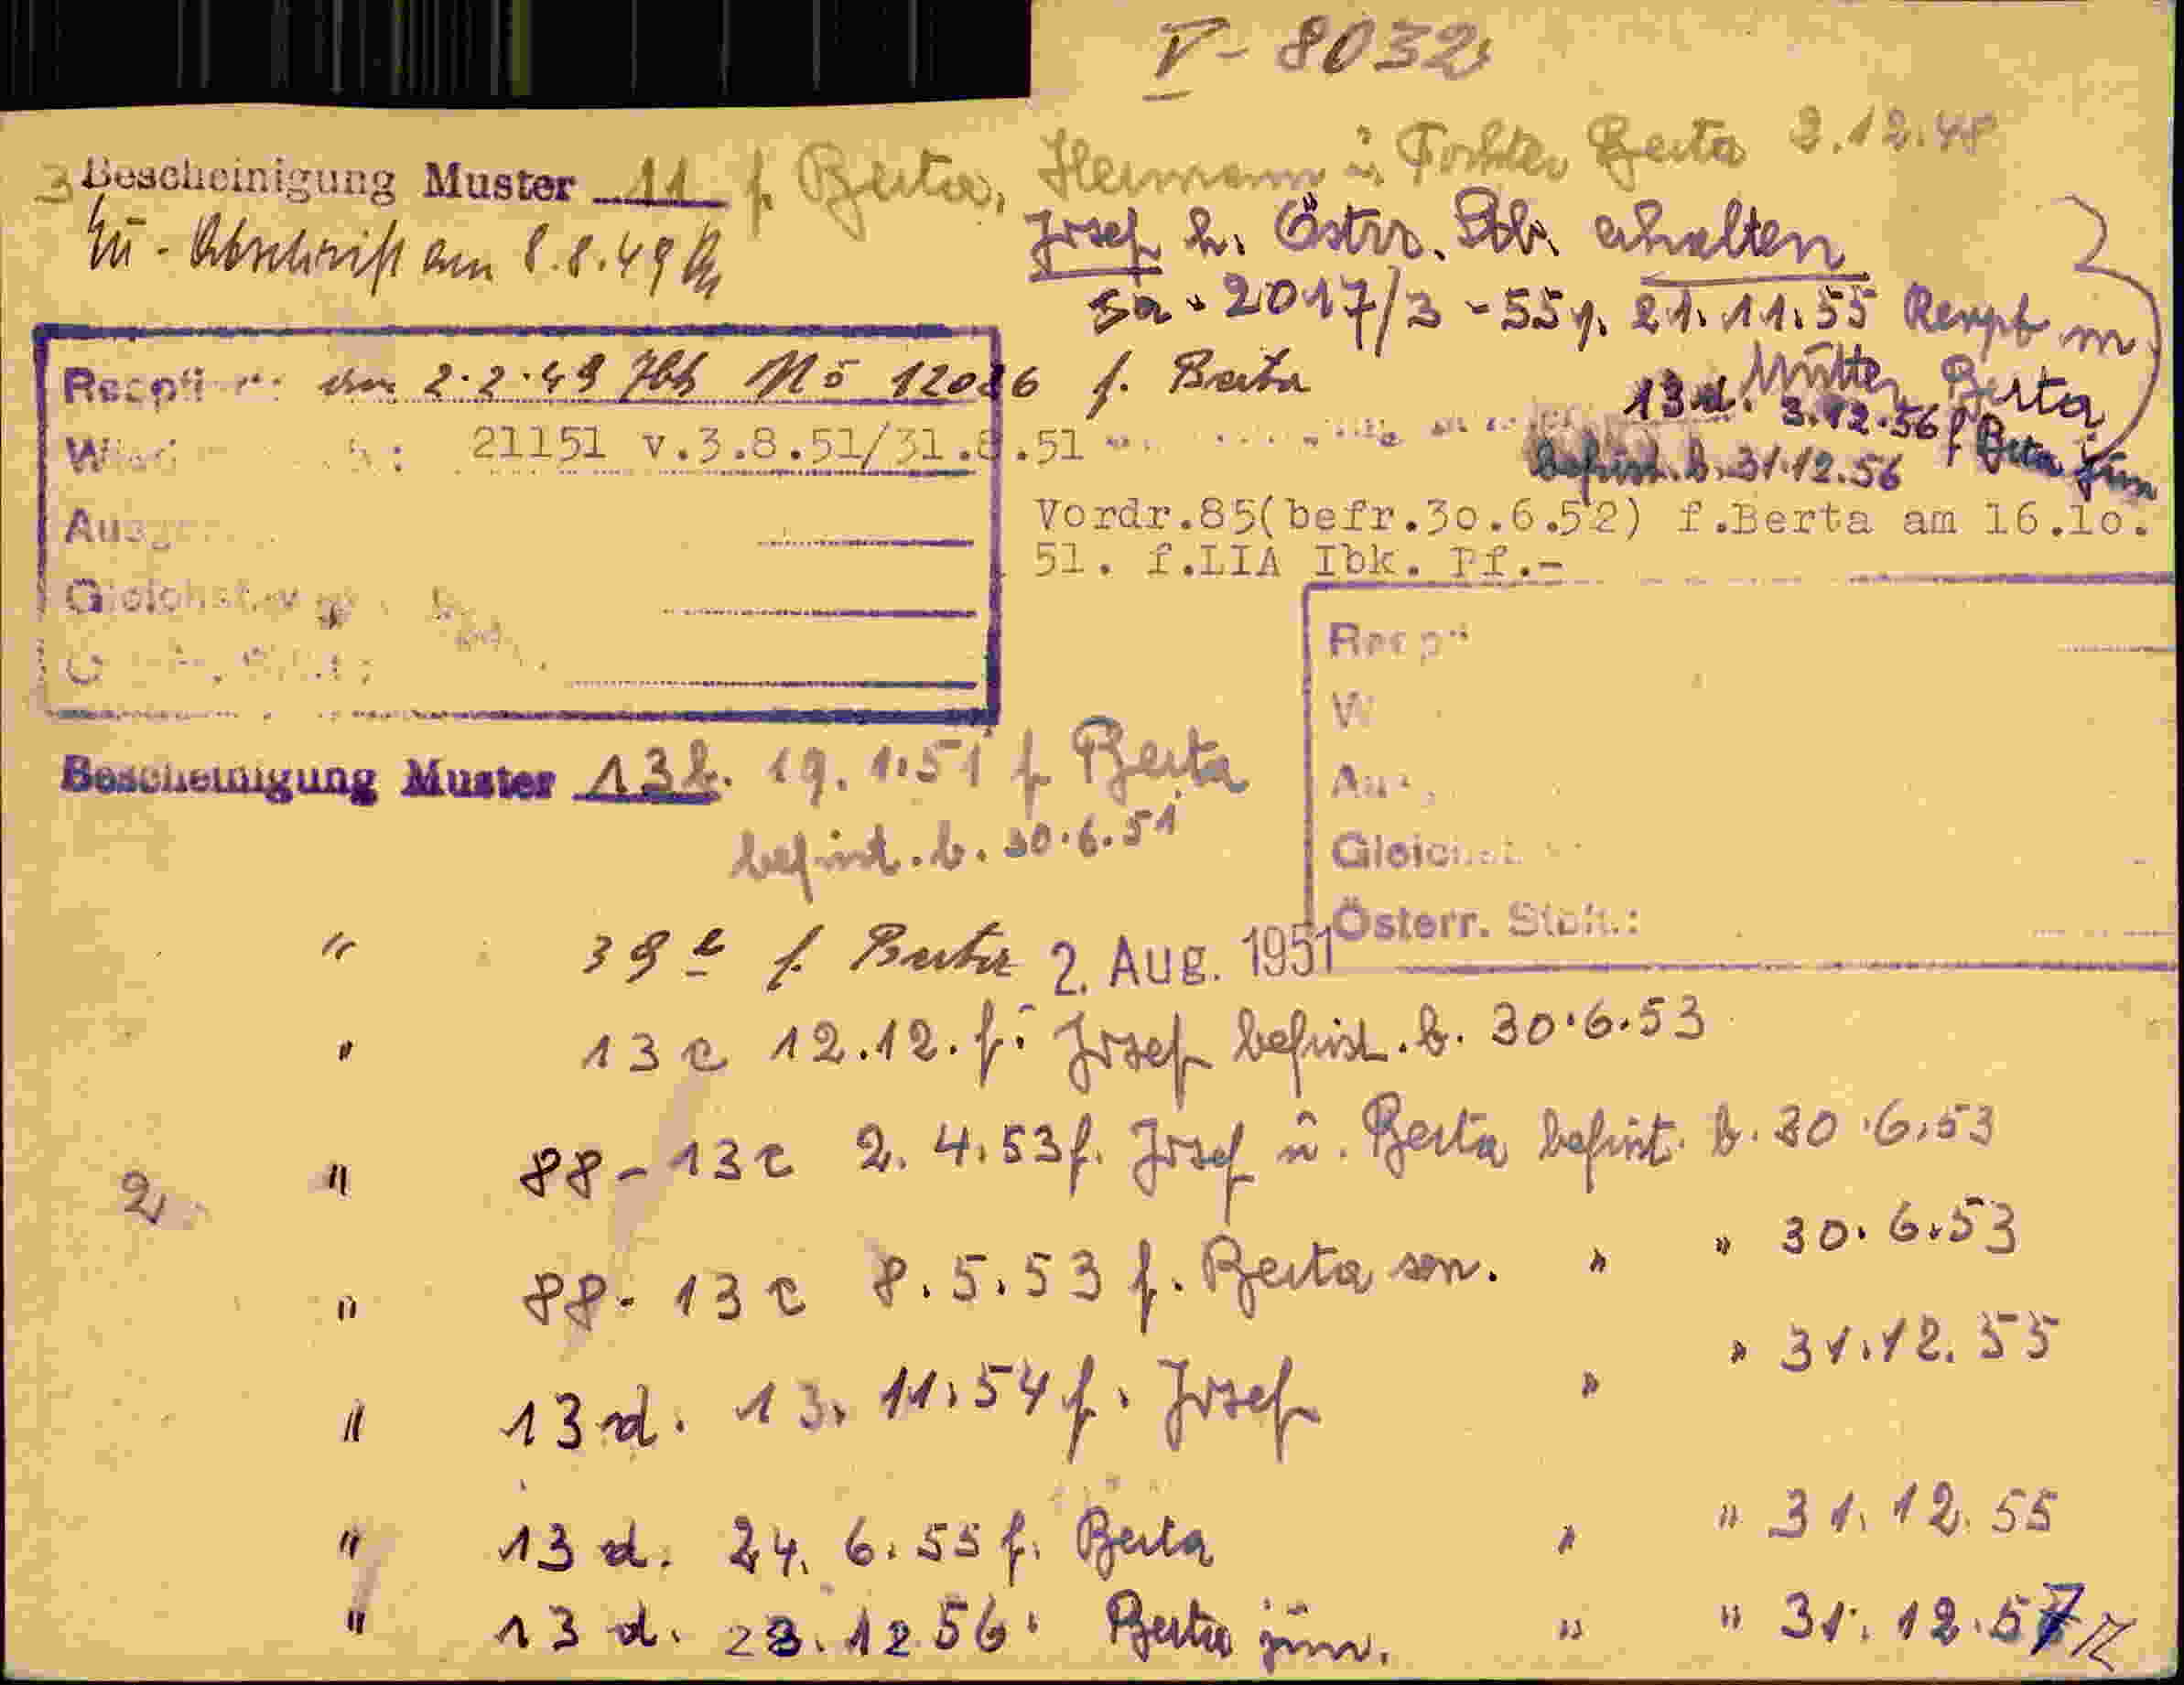 V - 8032
3 Bescheinigung Muster 11 f. Berta, Hermann ü. Tochter Berta 3.12.48
Zü - Abschrift am 8.8.49
Josef h. Östrr. Stb. erhalten
Ia - 2017/3 - 55 v. 21.11.55 Rexpt m
Mutter Berta
13 d. 3.12.56 f. Berta jün
befrist. b. 31.12.56
2.2.49 Jbk Nö 12086 f. Berta
21151 v.3.8.51/31.8.51
Vordr.85(befr.30.6.52) f.Berta am 16.10.
51. f.LIA Ibk. Pf.-
Gleichst.
Österr. Stbh.:
Bescheinigung Muster 13b. 19.1.51 f. Berta
befrist. b. 30.6.51
" 39 b f. Berta 2. Aug. 1951
" 13 c 12.12. f. Josef befrist. b. 30.6.53
2 " 88-13 c 2.4.53 f. Josef ü. Berta befrist. b. 30.6.53
" 88-13 c 8.5.53 f. Berta sen. " " 30.6.53
" 13 d. 13.11.54 f. Josef " " 31.12.55
" 13 d. 24.6.55 f. Berta " " 31.12.55
" 13 d. 28.12.56. Berta jün. " " 31.12.57